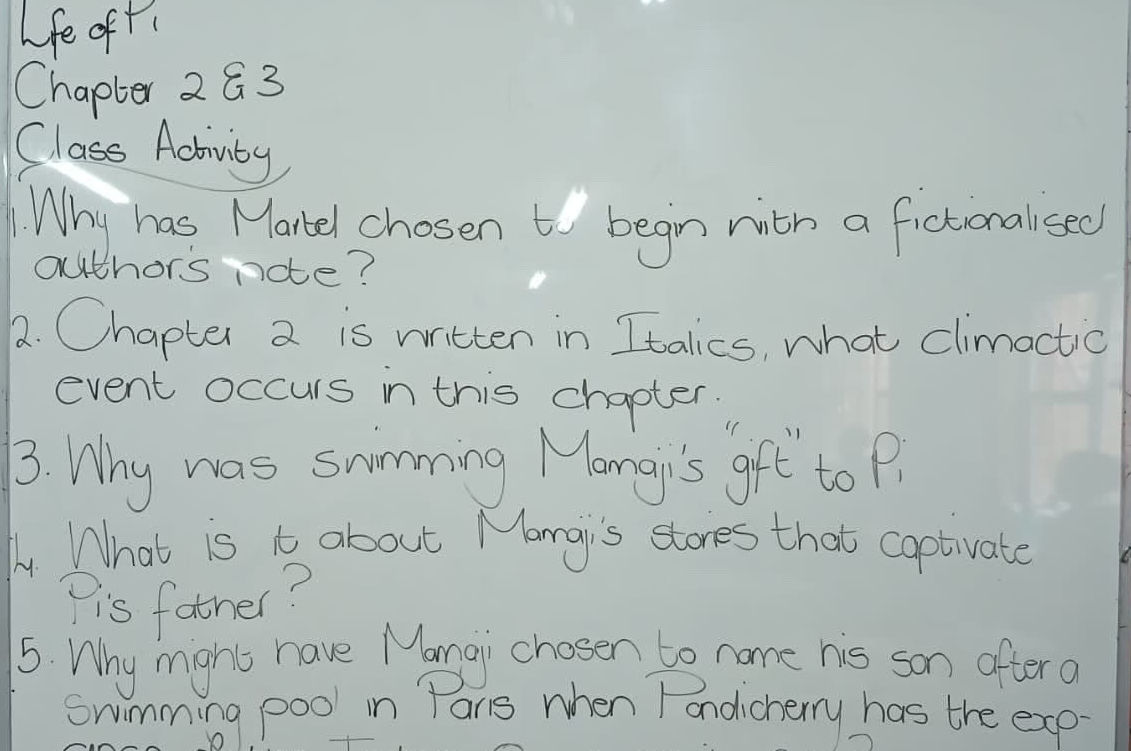 Life of Pi
Chapter 2 & 3
Class Activity
1. Why has Martel chosen to begin with a fictionalised
author's note?
2. Chapter 2 is written in Italics, what climactic
event occurs in this chapter.
3. Why was swimming Mamaji's "gift" to Pi
4. What is it about Mamaji's stories that captivate
Pi's father?
5. Why might have Mamaji chosen to name his son after a
Swimming pool in Paris when Pondicherry has the exp-